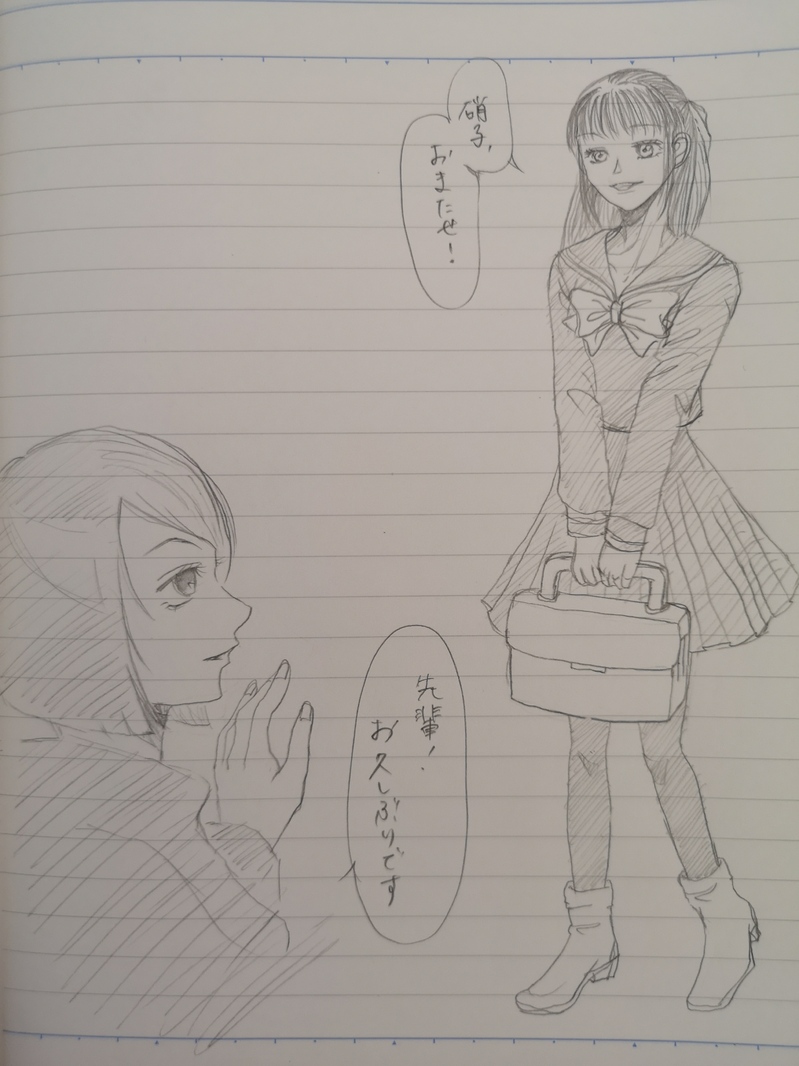 硝子、
おまたせ！
先輩！
お久しぶりです